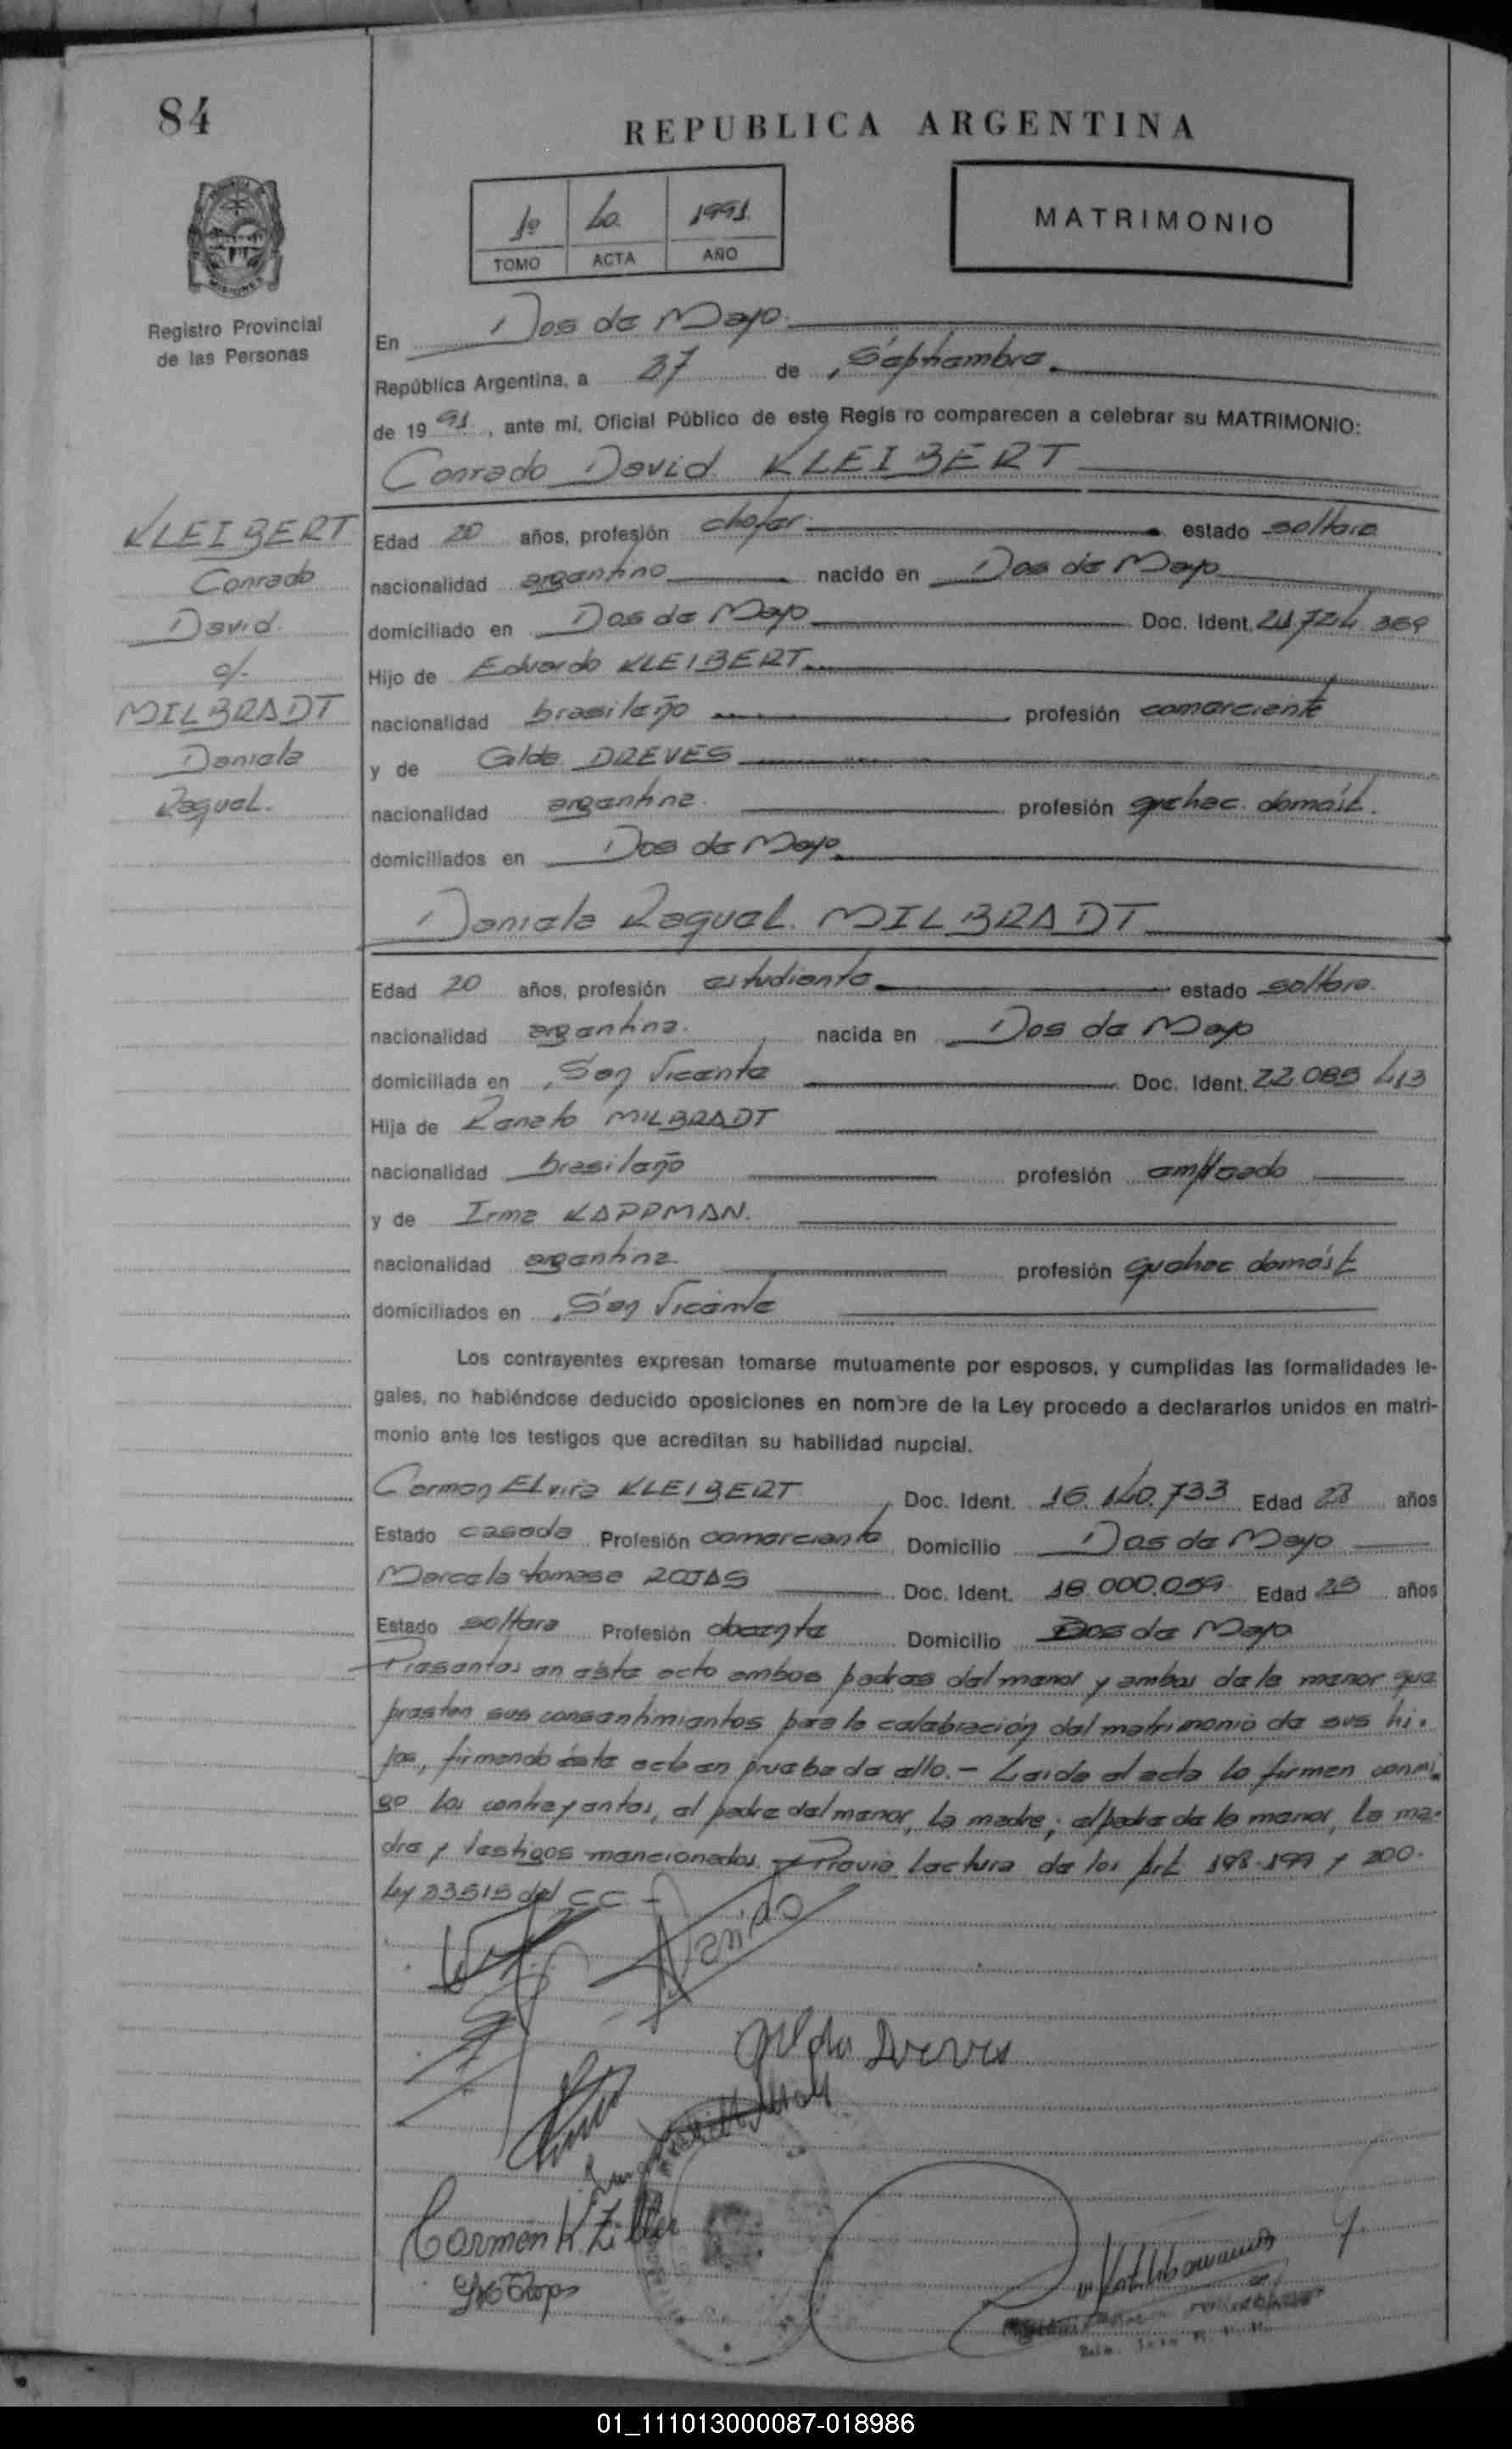 84
REPUBLICA ARGENTINA
1º 40 1991
TOMO ACTA AÑO
MATRIMONIO
Registro Provincial
de las Personas
En Dos de Mayo
República Argentina, a 27 de Septiembre
de 1991, ante mí, Oficial Público de este Regis ro comparecen a celebrar su MATRIMONIO:
Conrado David KLEIBERT
KLEIBERT
Conrado
David
c/.
MILBRADT
Daniela
Raquel.
Edad 20 años, profesión chofer estado soltero
nacionalidad argentino nacido en Dos de Mayo
domiciliado en Dos de Mayo Doc. Ident. 21.724.369
Hijo de Eduardo KLEIBERT
nacionalidad brasileño profesión comerciante
y de Gilda DREVES
nacionalidad argentina. profesión quehac. domést.
domiciliados en Dos de Mayo
Daniela Raquel. MILBRADT
Edad 20 años, profesión estudiante estado soltera.
nacionalidad argentina. nacida en Dos de Mayo
domiciliada en San Vicente Doc. Ident. 22.085.413
Hija de Renato MILBRADT
nacionalidad brasileño profesión empleado
y de Irma KAPPMAN.
nacionalidad argentina. profesión quehac. domést
domiciliados en San Vicente
Los contrayentes expresan tomarse mutuamente por esposos, y cumplidas las formalidades le-
gales, no habiéndose deducido oposiciones en nombre de la Ley procedo a declararlos unidos en matri-
monio ante los testigos que acreditan su habilidad nupcial.
Carmen Elvira KLEIBERT Doc. Ident. 16.140.733 Edad 28 años
Estado casada Profesión comerciante Domicilio Dos de Mayo
Marcela tomasa ROJAS Doc. Ident. 18.000.059 Edad 25 años
Estado soltera Profesión docente Domicilio Dos de Mayo
Presentes en este acto ambos padres del menor y ambos de la menor que
prestan sus consentimientos para la celebración del matrimonio de sus hi-
jos, firmando ésta acta en prueba de ello.- Leída el acta la firman conmi-
go los contrayentes, el padre del menor, la madre; el padre de la menor, la ma-
dre y testigos mencionados. Previa lectura de los Art 198-199 y 200.
Ley 23515 del CC -
Gilda Dreves
Carmen K Ziller
01_111013000087-018986